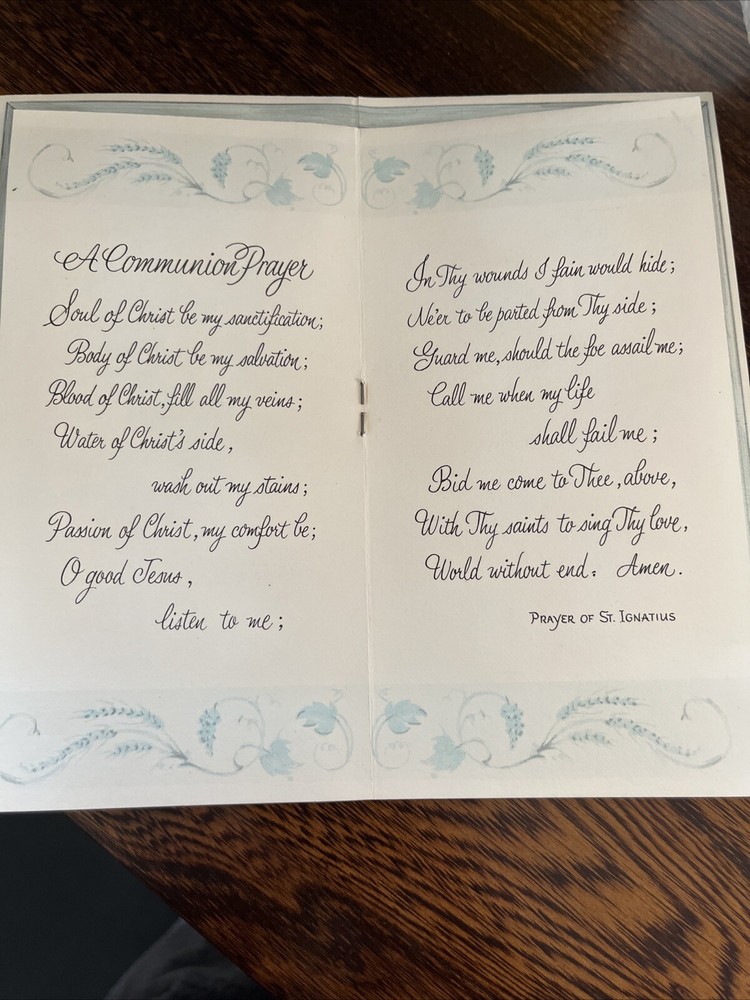 A Communion Prayer
Soul of Christ be my sanctification;
Body of Christ be my salvation;
Blood of Christ, fill all my veins;
Water of Christ's side,
wash out my stains;
Passion of Christ, my comfort be;
O good Jesus,
listen to me;
In Thy wounds I fain would hide;
Ne'er to be parted from Thy side;
Guard me, should the foe assail me;
Call me when my life
shall fail me;
Bid me come to Thee, above,
With Thy saints to sing Thy love,
World without end. Amen.
PRAYER OF ST. IGNATIUS